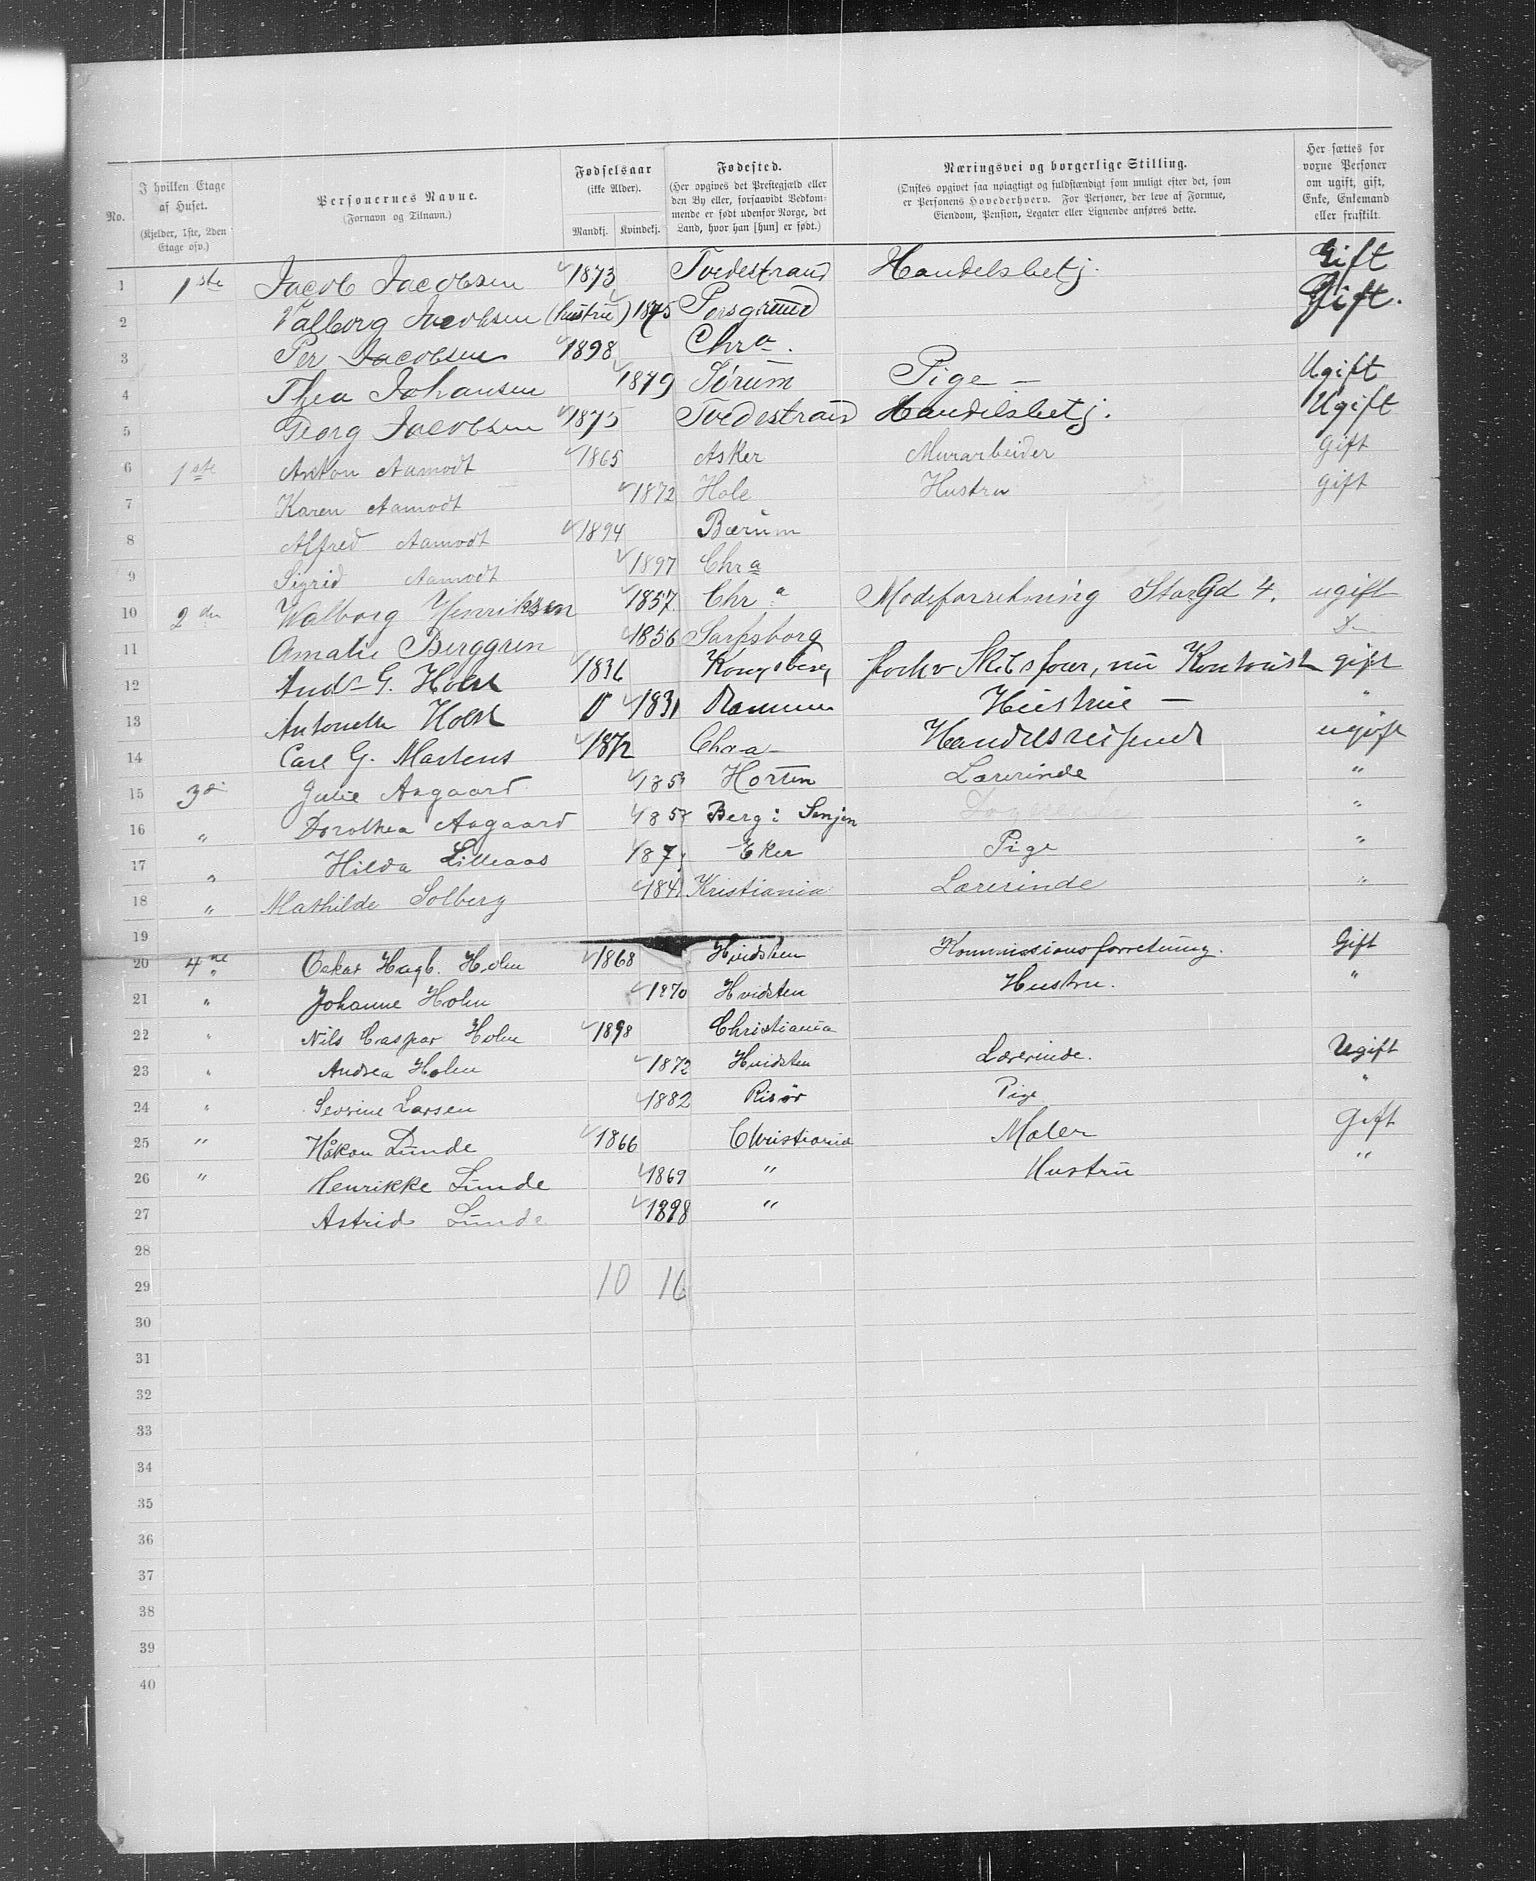 No. | I hvilken Etage af Huset. (Kjelder, 1ste, 2den Etage osv.) | Personernes Navne. (Fornavn og Tilnavn.) | Fødselsaar (ikke Alder). Mandkj. | Kvindekj. | Fødested. (Her opgives det Prestegjæld eller den By eller, forsaavidt Vedkommende er født udenfor Norge, det Land, hvor han [hun] er født.) | Næringsvei og borgerlige Stilling. (Ønskes opgivet saa nøiagtigt og fuldstændigt som muligt efter det, som er Personens Hovederhverv. For Personer, der leve af Formue, Eiendom, Pension, Legater eller Lignende anføres dette. | Her sættes for voxne Personer om ugift, gift, Enke, Enkemand eller fraskilt.
1 1ste Jacob Jacobsen 1873 Tvedestrand Handelsbetj. Gift
2 Valborg Jacobsen (hustru) 1875 Porsgrund Gift.
3 Per Jacobsen 1898 Chra.
4 Thea Johansen 1879 Sørum Pige – Ugift
5 Georg Jacobsen 1875 Tvedestrand Handelsbetj. Ugift
6 1ste Anton Aamodt 1865 Asker Murarbeider gift
7 Karen Aamodt 1872 Hole Hustru gift
8 Alfred Aamodt 1894 Bærum
9 Sigrid Aamodt 1897 Chra
10 2den Walborg Henriksen 1857 Chra Modeforretning StorGd 4. ugift
11 Amalie Berggren 1856 Sarpsborg
12 Andr G. Holst 1836 Kongsberg forhv Skibsfører, nu Kontorist gift
13 Antonette Holst 1831 Hustrue – "
14 Carl G. Martens 1872 Chra – Handelsreisende ugift
15 3de Julie Aagaard 185 Horten Lærerinde "
16 " Dorothea Aagaard 185 Berg i Senjen "
17 " Hilda Lilleaas 187 Eker Pige "
18 " Mathilde Solberg 184 Kristiania Lærerinde "
19
20 4de Oskar Hagb. Holm 1868 Hvidsten Kommissionsforretning. Gift
21 " Johanne Holm 1870 Hvidsten Hustru. "
22 " Nils Caspar Holm 1898 Christiania
23 " Andrea Holm 1872 Hvidsten Lærerinde. Ugift
24 " Severine Larsen 1882 Risør Pige "
25 " Håkon Lunde 1866 Christiania Maler Gift
26 " Henrikke Lunde 1869 " Hustru "
27 Astrid Lunde 1898 "
28
29 10 16
30
31
32
33
34
35
36
37
38
39
40